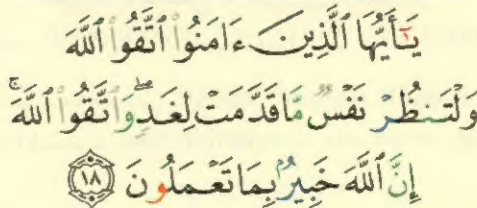 يَٰٓأَيُّهَا ٱلَّذِينَ ءَامَنُوا۟ ٱتَّقُوا۟ ٱللَّهَ
وَلْتَنظُرْ نَفْسٌ مَّا قَدَّمَتْ لِغَدٍۖ وَٱتَّقُوا۟ ٱللَّهَۚ
إِنَّ ٱللَّهَ خَبِيرٌۢ بِمَا تَعْمَلُونَ ۝١٨